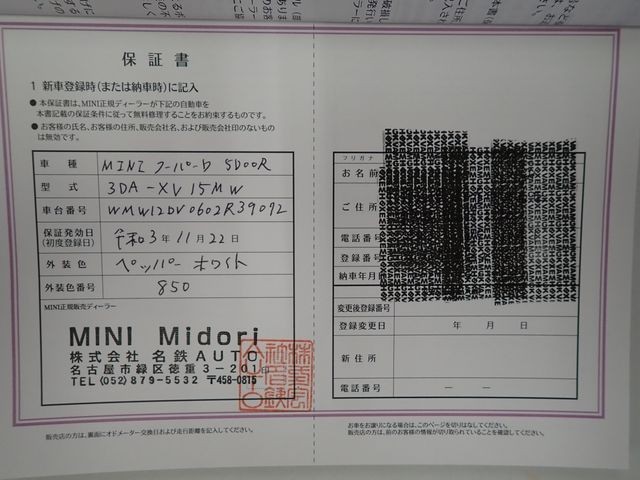 保証書
1 新車登録時(または納車時)に記入
●本保証書は、MINI正規ディーラーが下記の自動車を
本書記載の保証条件に従って無料修理することをお約束するものです。
●お客様の氏名、お客様の住所、販売会社名、および販売会社印のないもの
は無効です。
車種 MINI クーパーD 5DOOR
型式 3DA-XV15MW
車台番号 WMW12DV0602R39092
保証発効日
(初度登録日) 令和3年11月22日
外装色 ペッパー ホワイト
外装色番号 850
MINI正規販売ディーラー
MINI Midori
株式会社 名鉄AUTO
名古屋市緑区徳重3-201 印
TEL(052)879-5532 〒458-0815
販売店の方は、裏面にオドメーター交換日および走行距離を記入してください。
フリガナ
お名前
ご住所
電話番号
登録番号
納車年月
変更後登録番号
登録変更日 年 月 日
新住所
電話番号 ― ―
お車をお譲りになる場合は、このページを切りはなしてください。
販売店の方は、前のお客様の情報が切り取られていることを確認してください。